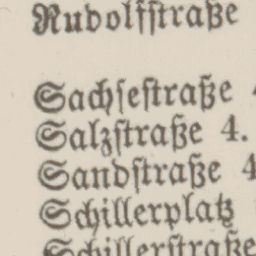 Rudolfſtraße
Sachſeſtraße
Salzſtraße 4.
Sandſtraße 4
Schillerplatz
Schillerſtraße